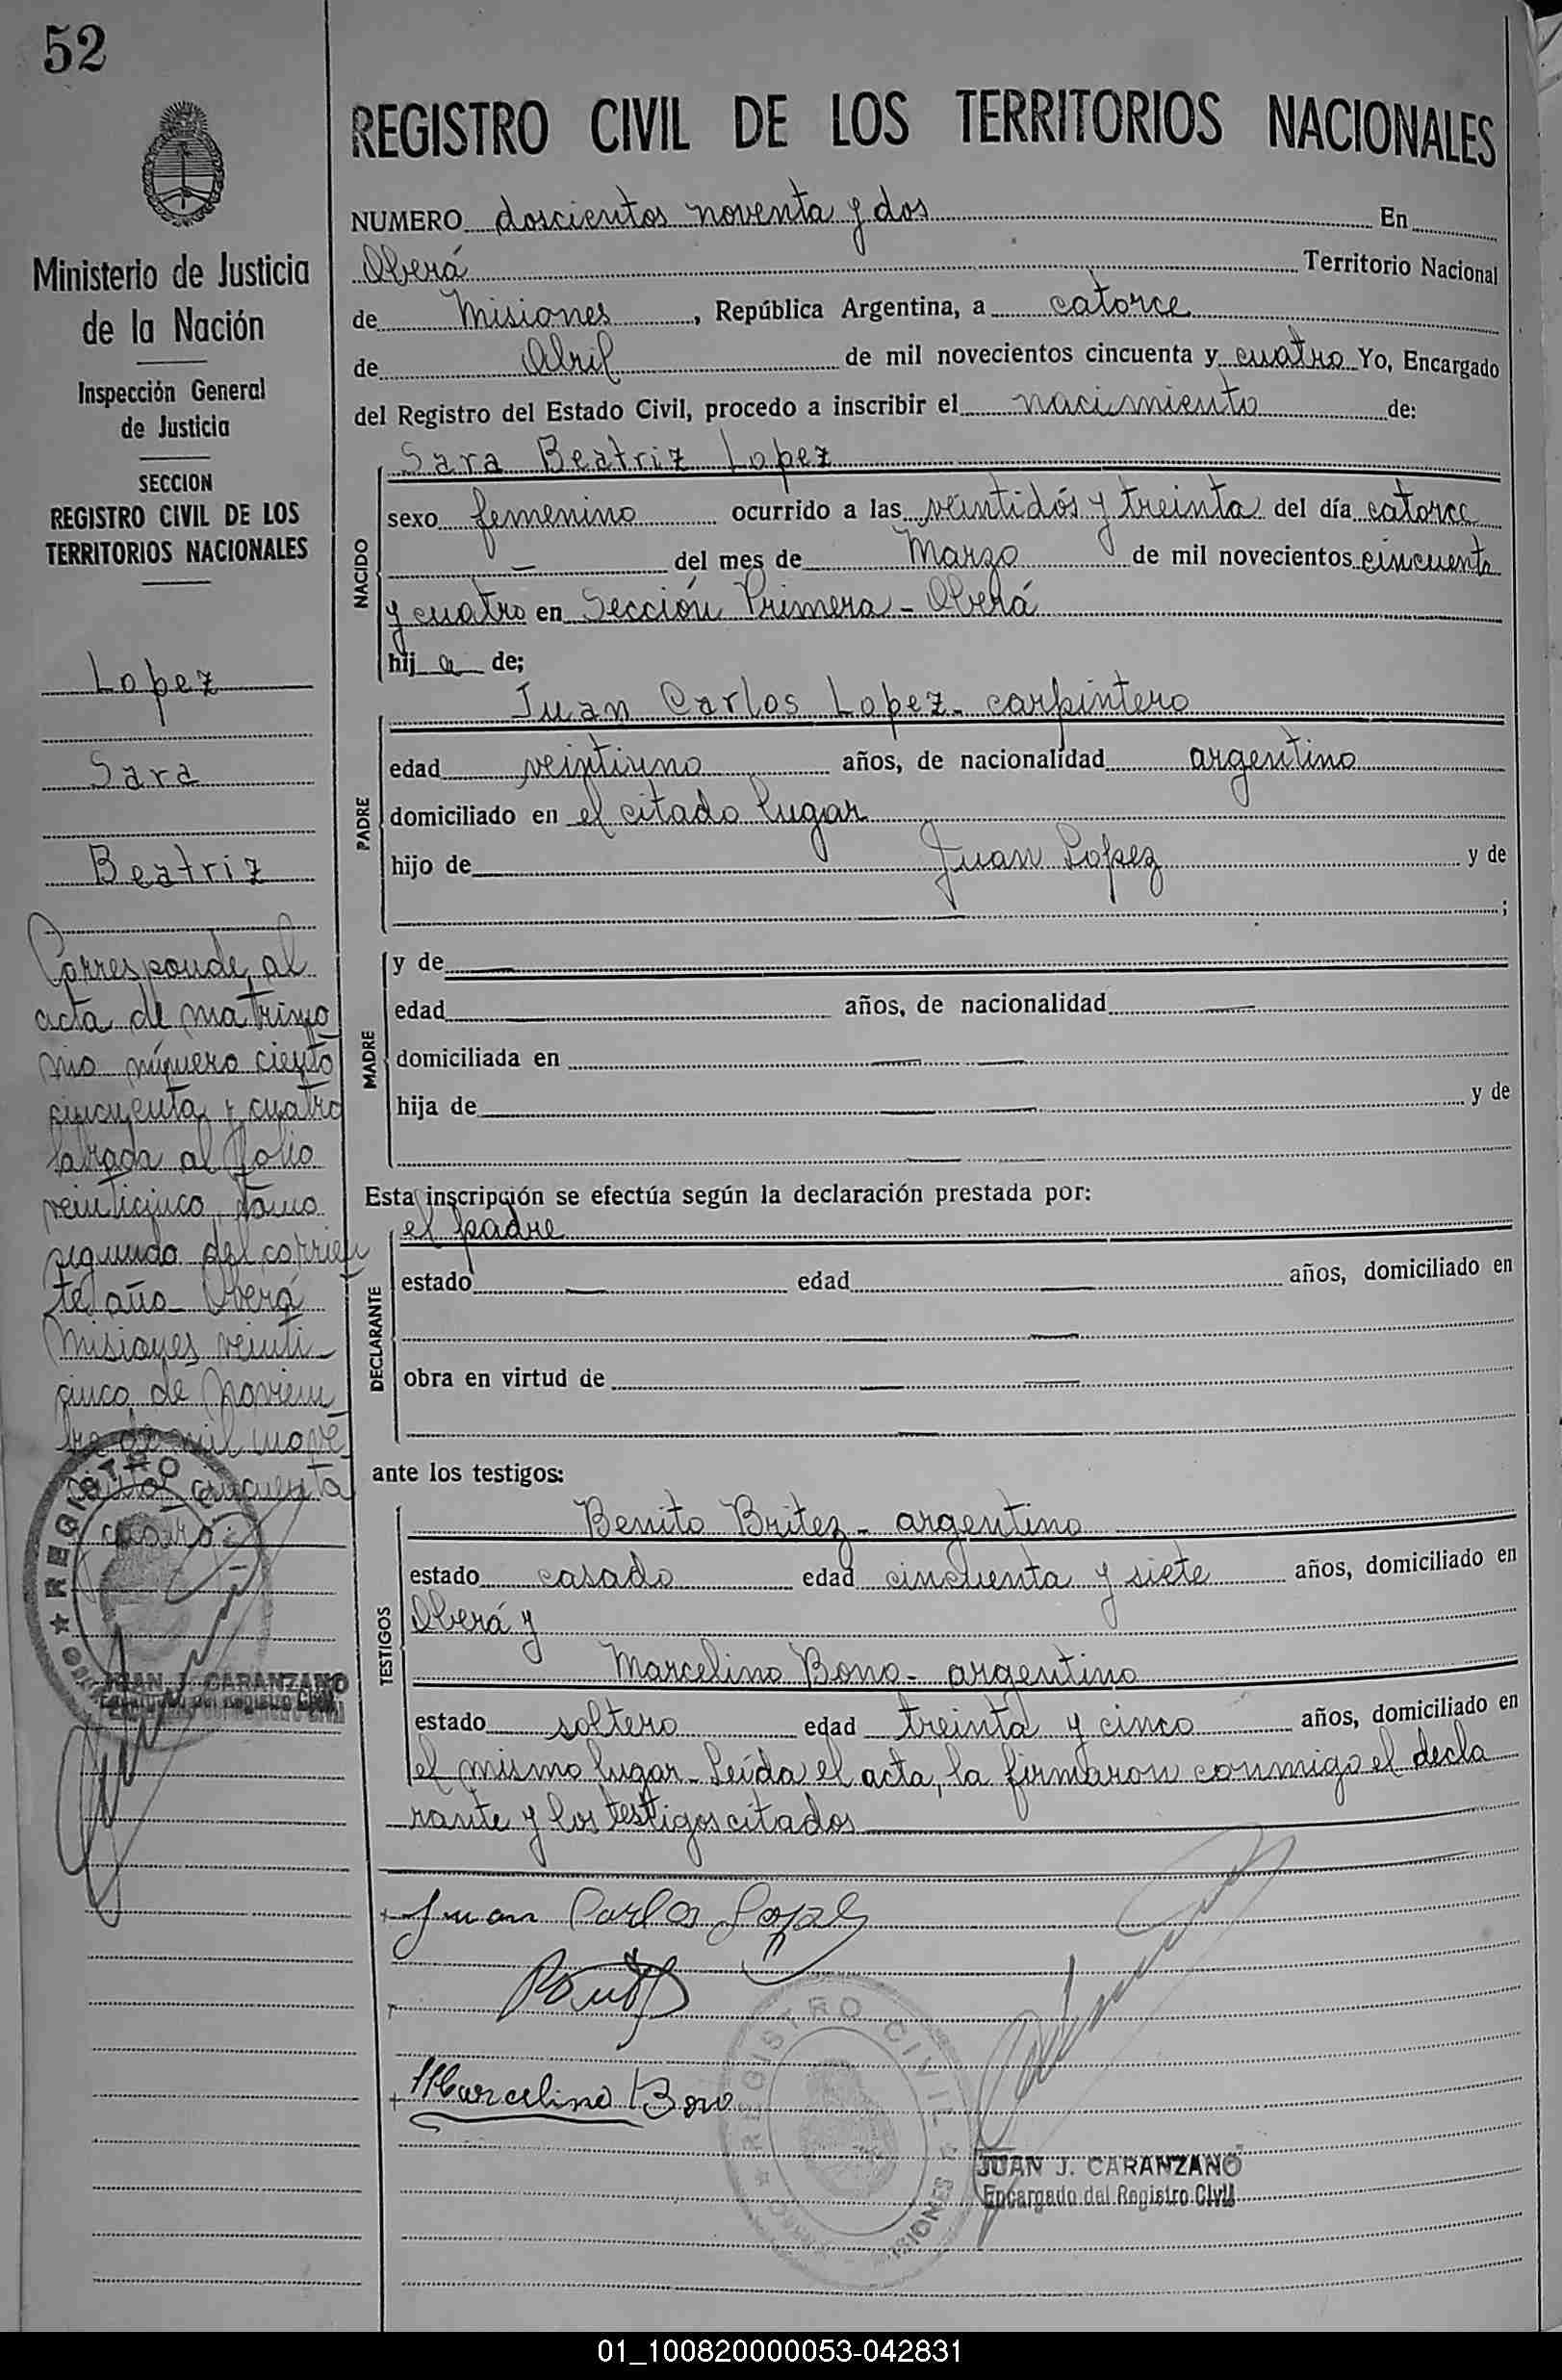 52
Ministerio de Justicia
de la Nación
Inspección General
de Justicia
SECCION
REGISTRO CIVIL DE LOS
TERRITORIOS NACIONALES
Lopez
Sara
Beatriz
Corresponde al
acta de matrimo
nio número ciento
cincuenta y cuatro
labrada al folio
veinticinco, tomo
segundo del corrien
te año - Oberá
Misiones veinti
cinco de Noviem
bre de mil nove
cientos cincuenta
y cuatro.-
REGISTRO
JUAN J. CARANZANO
Encargado del Registro Civil
REGISTRO CIVIL DE LOS TERRITORIOS NACIONALES
NUMERO doscientos noventa y dos En
Oberá Territorio Nacional
de Misiones, República Argentina, a catorce
de Abril de mil novecientos cincuenta y cuatro Yo, Encargado
del Registro del Estado Civil, procedo a inscribir el nacimiento de:
NACIDO
Sara Beatriz Lopez
sexo femenino ocurrido a las veintidós y treinta del día catorce
— del mes de Marzo de mil novecientos cincuenta
y cuatro en Sección Primera - Oberá
hij a de;
PADRE
Juan Carlos Lopez - carpintero
edad veintiuno años, de nacionalidad argentino
domiciliado en el citado lugar
hijo de Juan Lopez y de
;
MADRE
y de
edad años, de nacionalidad
domiciliada en
hija de y de
Esta inscripción se efectúa según la declaración prestada por:
DECLARANTE
el padre
estado edad años, domiciliado en
obra en virtud de
ante los testigos:
TESTIGOS
Benito Britez - argentino
estado casado edad cincuenta y siete años, domiciliado en
Oberá y
Marcelino Bono - argentino
estado soltero edad treinta y cinco años, domiciliado en
el mismo lugar - Leída el acta, la firmaron conmigo el decla
rante y los testigos citados
Juan Carlos Lopez
Marcelino Bono
REGISTRO CIVIL
MISIONES
JUAN J. CARANZANO
Encargado del Registro Civil
01_100820000053-042831